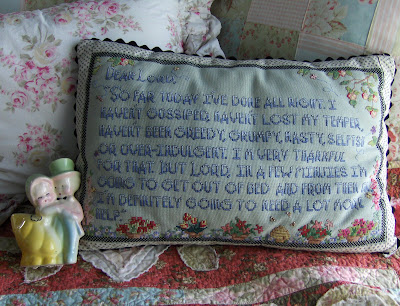 Dear Lord,
"So far today I've done all right. I
haven't gossiped, haven't lost my temper,
haven't been greedy, grumpy, nasty, selfish
or over-indulgent. I'm very thankful
for that. But Lord, in a few minutes I'm
going to get out of bed and from then on
I'm definitely going to need a lot more
help."